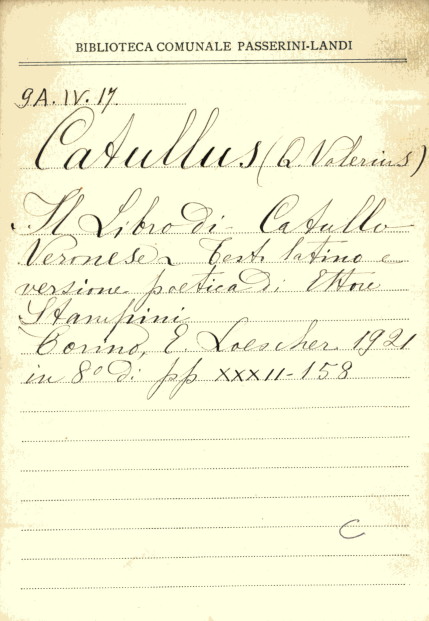 BIBLIOTECA COMUNALE PASSERINI-LANDI
9A. IV. 17
Catullus (Q. Valerius)
Il Libro di Catullo
Veronese Testo latino e
versione poetica di Ettore
Stampini
Torino, E. Loescher 1921
in 8º di pp XXXII-158
C